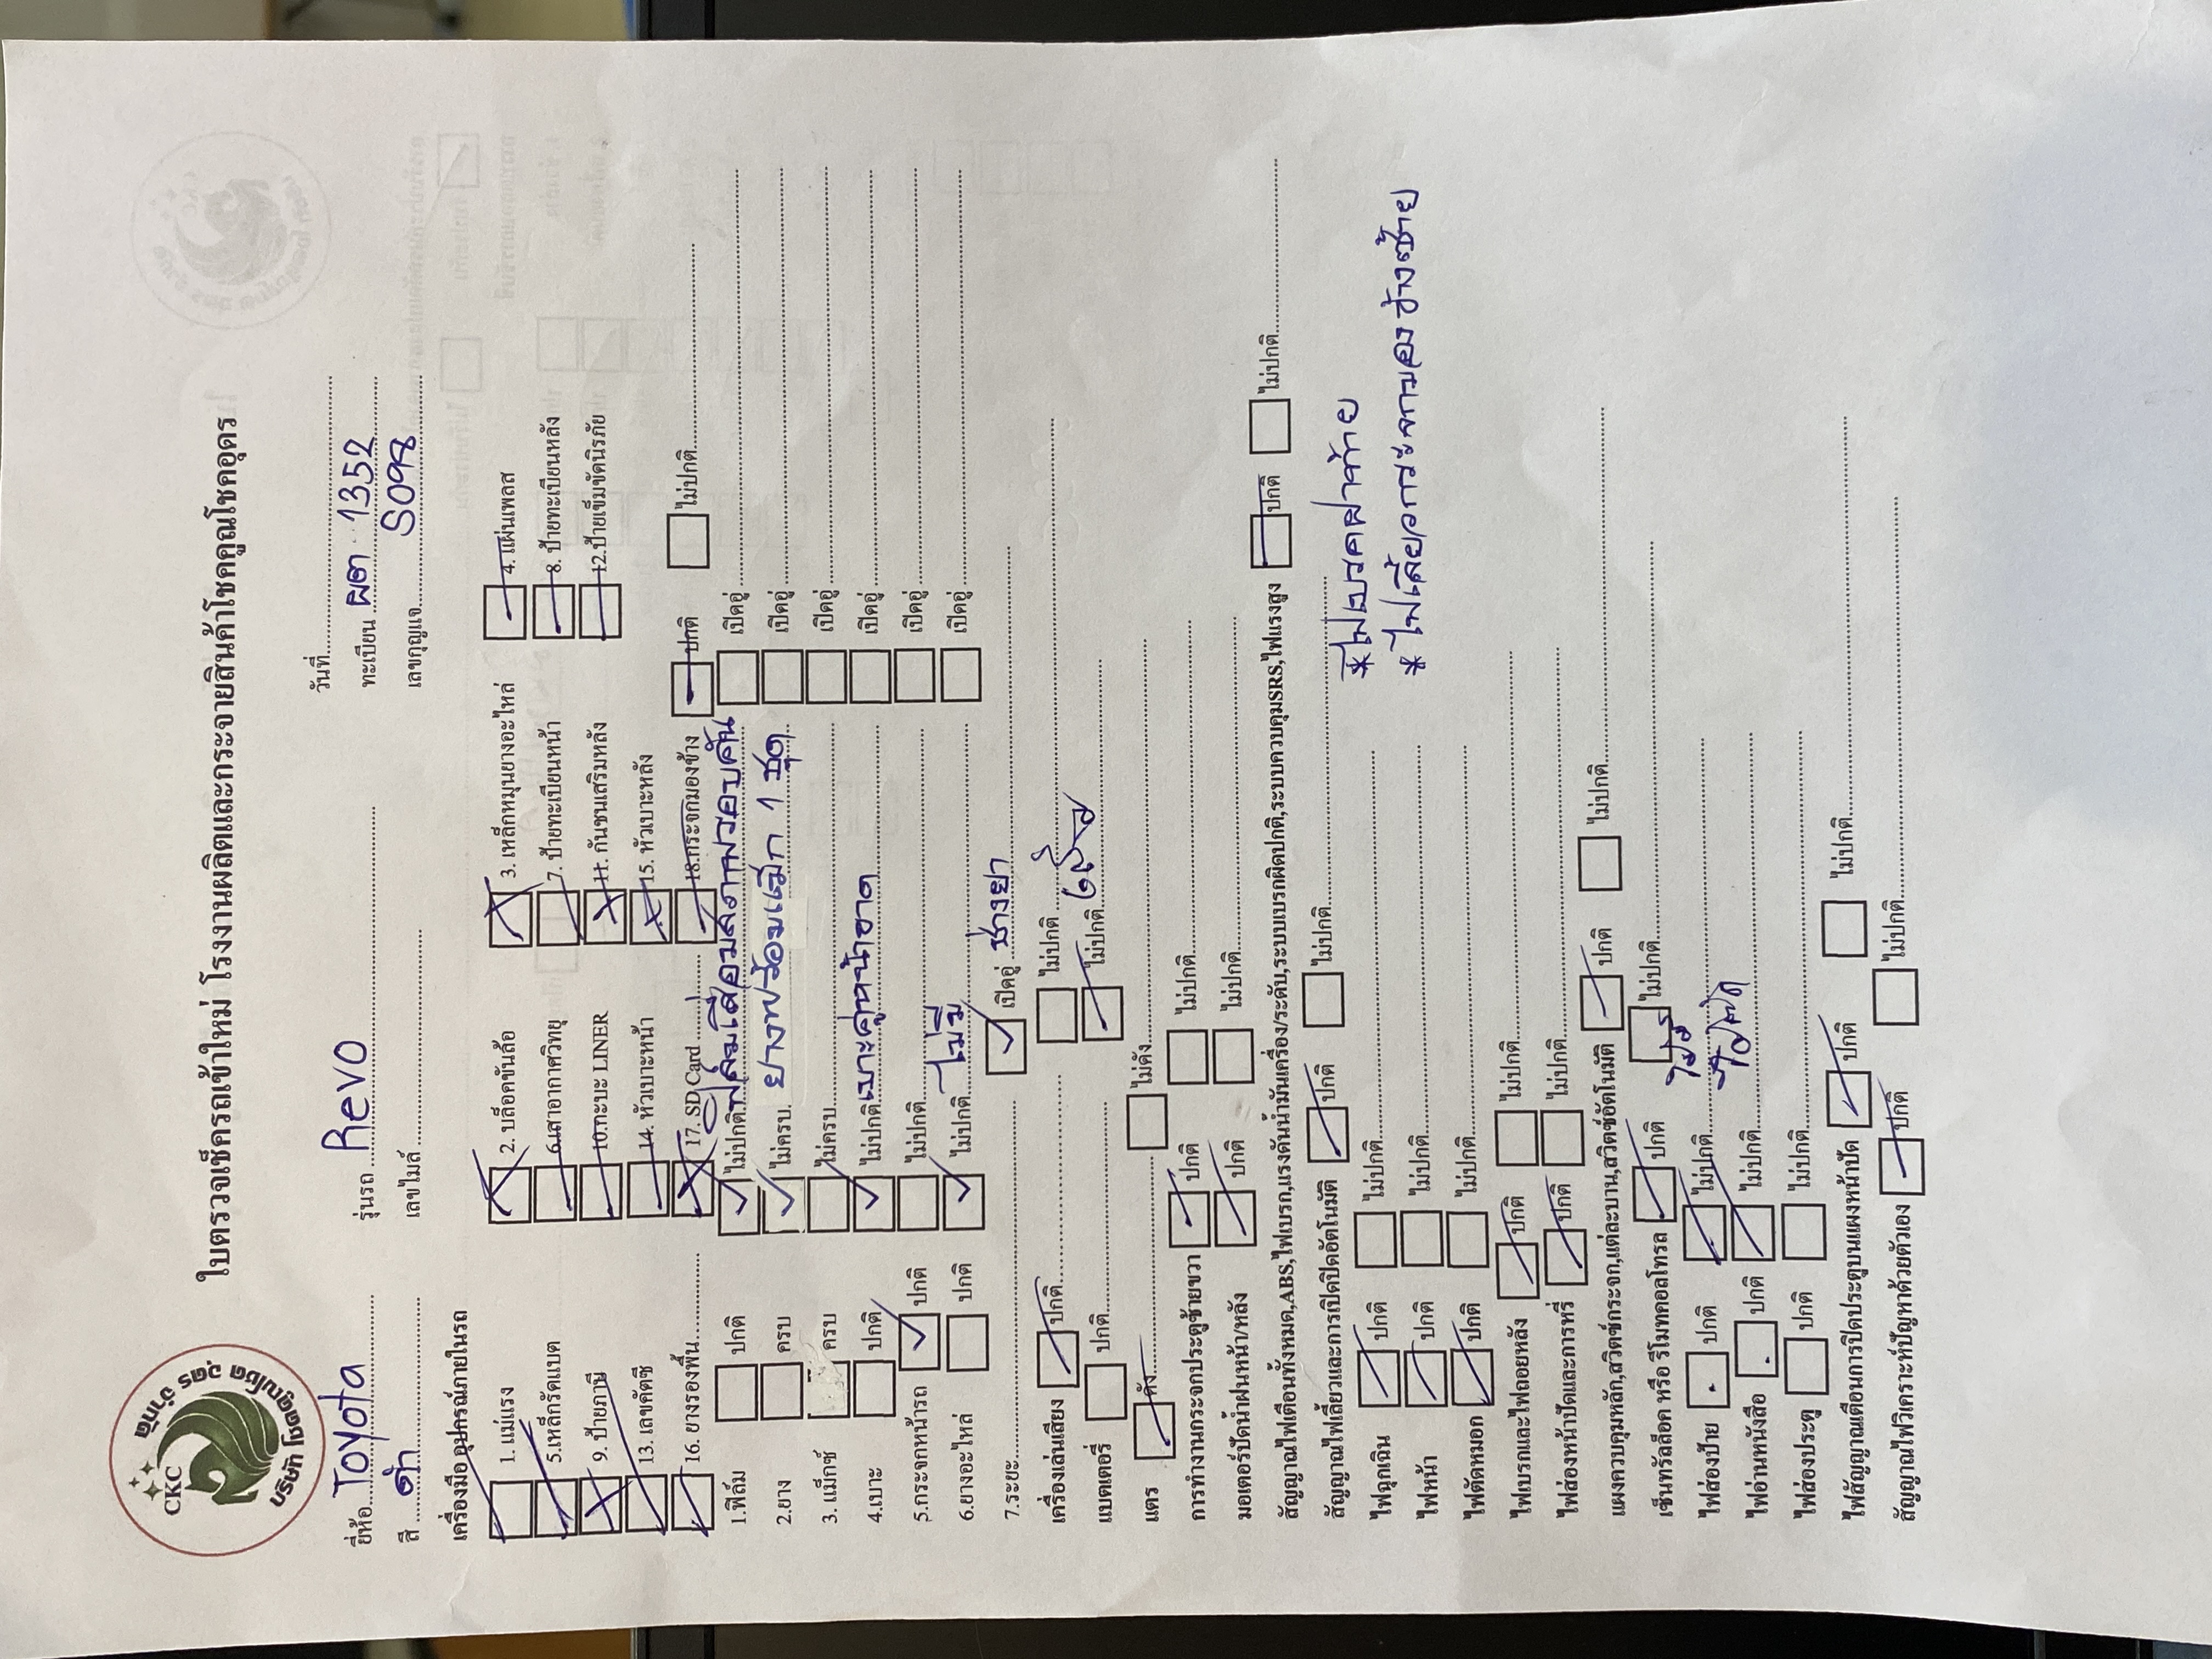 CKC
บริษัท โชคคูณโชค อุดร จำกัด
ใบตรวจเช็ครถเข้าใหม่ โรงงานผลิตและกระจายสินค้าโชคคูณโชคอุดร
วันที่
ยี่ห้อ Toyota รุ่นรถ Revo ทะเบียน ผต 1352
สี ดำ เลขไมล์ เลขกุญแจ S098
เครื่องมือ อุปกรณ์ภายในรถ
1. แม่แรง 2. บล็อคขันล้อ 3. เหล็กหมุนยางอะไหล่ 4. แผ่นเพลส
5.เหล็กรัดแบต 6.เสาอากาศวิทยุ 7. ป้ายทะเบียนหน้า 8. ป้ายทะเบียนหลัง
9. ป้ายภาษี 10.กะบะ LINER 11. กันชนเสริมหลัง 12.ป้ายเข็มขัดนิรภัย
13. เลขคัตซี 14. หัวเบาะหน้า 15. หัวเบาะหลัง
16. ยางรองพื้น 17. SD Card 18.กระจกมองข้าง ปกติ ไม่ปกติ
1.ฟิล์ม ปกติ ไม่ปกติ ฟิล์มเสื่อมสภาพรอบคัน เปิดอู่
2.ยาง ครบ ไม่ครบ ยางพร้อมแม็ก 1 ชุด เปิดอู่
3. แม็กซ์ ครบ ไม่ครบ เปิดอู่
4.เบาะ ปกติ ไม่ปกติ เบาะคู่หน้าขาด เปิดอู่
5.กระจกหน้ารถ ปกติ ไม่ปกติ เปิดอู่
6.ยางอะไหล่ ปกติ ไม่ปกติ ไม่มี เปิดอู่
7.ระยะ เปิดอู่ ช่างยา
เครื่องเล่นเสียง ปกติ ไม่ปกติ
แบตเตอรี่ ปกติ ไม่ปกติ
แตร ดัง ไม่ดัง
การทำงานกระจกประตูซ้ายขวา ปกติ ไม่ปกติ
มอเตอร์ปัดน้ำฝนหน้า/หลัง ปกติ ไม่ปกติ
สัญญาณไฟเตือนทั้งหมด,ABS,ไฟเบรก,แรงดันน้ำมันเครื่อง/ระดับ,ระบบเบรกผิดปกติ,ระบบควบคุมSRS,ไฟแรงสูง ปกติ ไม่ปกติ
สัญญาณไฟเลี้ยวและการเปิดปิดอัตโนมัติ ปกติ ไม่ปกติ
ไฟฉุกเฉิน ปกติ ไม่ปกติ
* ไฟเบรคฝาท้าย
ไฟหน้า ปกติ ไม่ปกติ
* ไฟเลี้ยวกระจกมองข้างซ้าย
ไฟตัดหมอก ปกติ ไม่ปกติ
ไฟเบรกและไฟถอยหลัง ปกติ ไม่ปกติ
ไฟส่องหน้าปัดและการหรี่ ปกติ ไม่ปกติ
แผงควบคุมหลัก,สวิตซ์กระจก,แต่ละบาน,สวิตซ์อัตโนมัติ ปกติ ไม่ปกติ
เซ็นทรัลล็อค หรือ รีโมทคอลโทรล ปกติ ไม่ปกติ
ไฟส่องป้าย ปกติ ไม่ปกติ
ไฟอ่านหนังสือ ปกติ ไม่ปกติ
ไฟส่องประตู ปกติ ไม่ปกติ
ไฟสัญญาณเตือนการปิดประตูบนแผงหน้าปัด ปกติ ไม่ปกติ
สัญญาณไฟวิเคราะห์ปัญหาด้วยตัวเอง ปกติ ไม่ปกติ